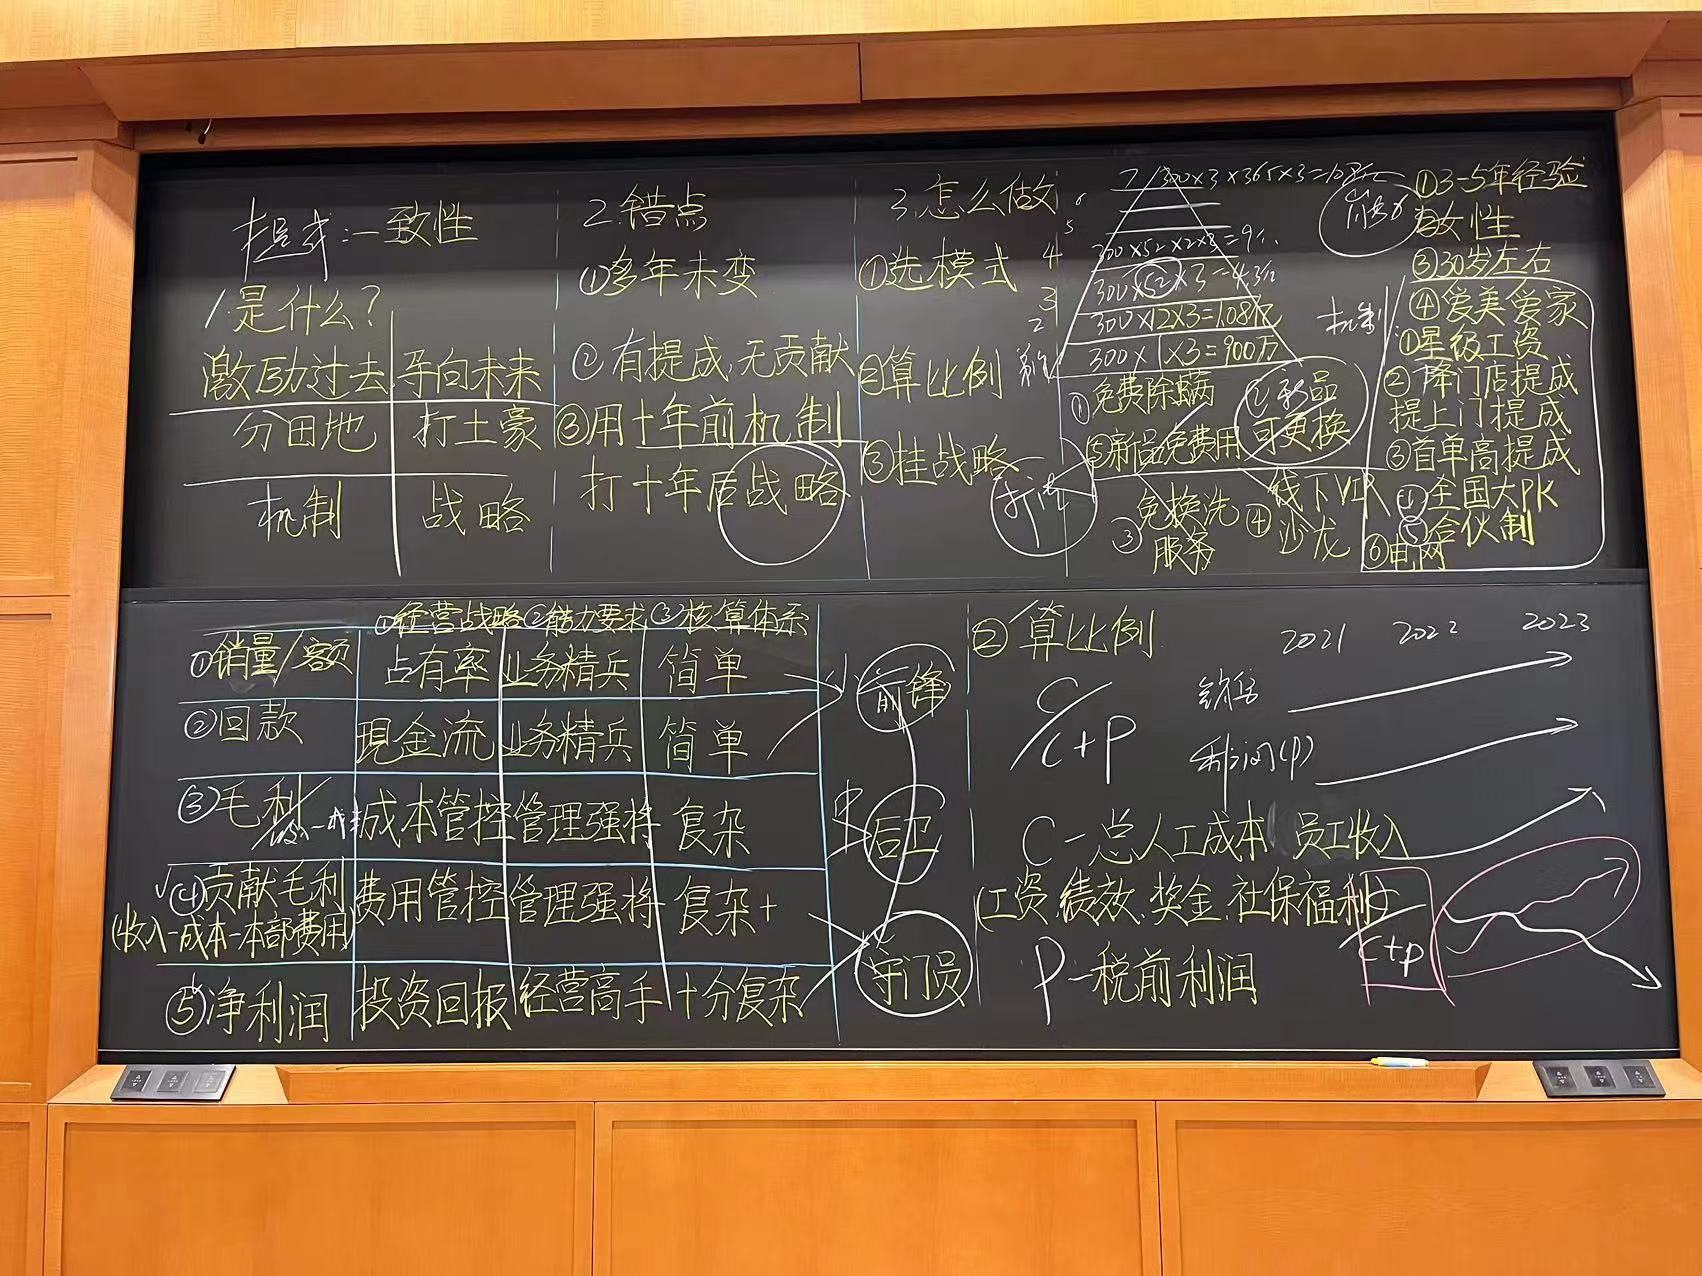 提成:一致性
1.是什么?
激励过去 导向未来
分田地 打土豪
机制 战略
2.错点
①多年未变
②有提成,无贡献
③用十年前机制
打十年后战略
3.怎么做
①选模式
②算比例
③挂战略
打法
6
5
4
3
2
7 300×3×365×3=
300×52×2×3=9
300×52×3=4.
300×12×3=1.08亿
300×1×3=900万
①免费除螨
②新品
可更换
⑤新品免费用
③免换洗
服务
④线下VIP
沙龙
能力
①3-5年经验
②女性
③30岁左右
④爱美爱家
机制
①星级工资
②降门店提成
提上门提成
③首单高提成
④全国大PK
⑤合伙制
⑥电网
①经营战略 ②能力要求 ③核算体系
①销量/客额 占有率 业务精兵 简单
②回款 现金流 业务精兵 简单
③毛利 成本管控 管理强将 复杂
√④贡献毛利 费用管控 管理强将 复杂+
(收入-成本-本部费用)
⑤净利润 投资回报 经营高手 十分复杂
前锋
后卫
守门员
②算比例
2021 2022 2023
C/C+P
销售
利润(P)
C-总人工成本 员工收入
(工资,绩效,奖金,社保福利)
C/C+P
P-税前利润